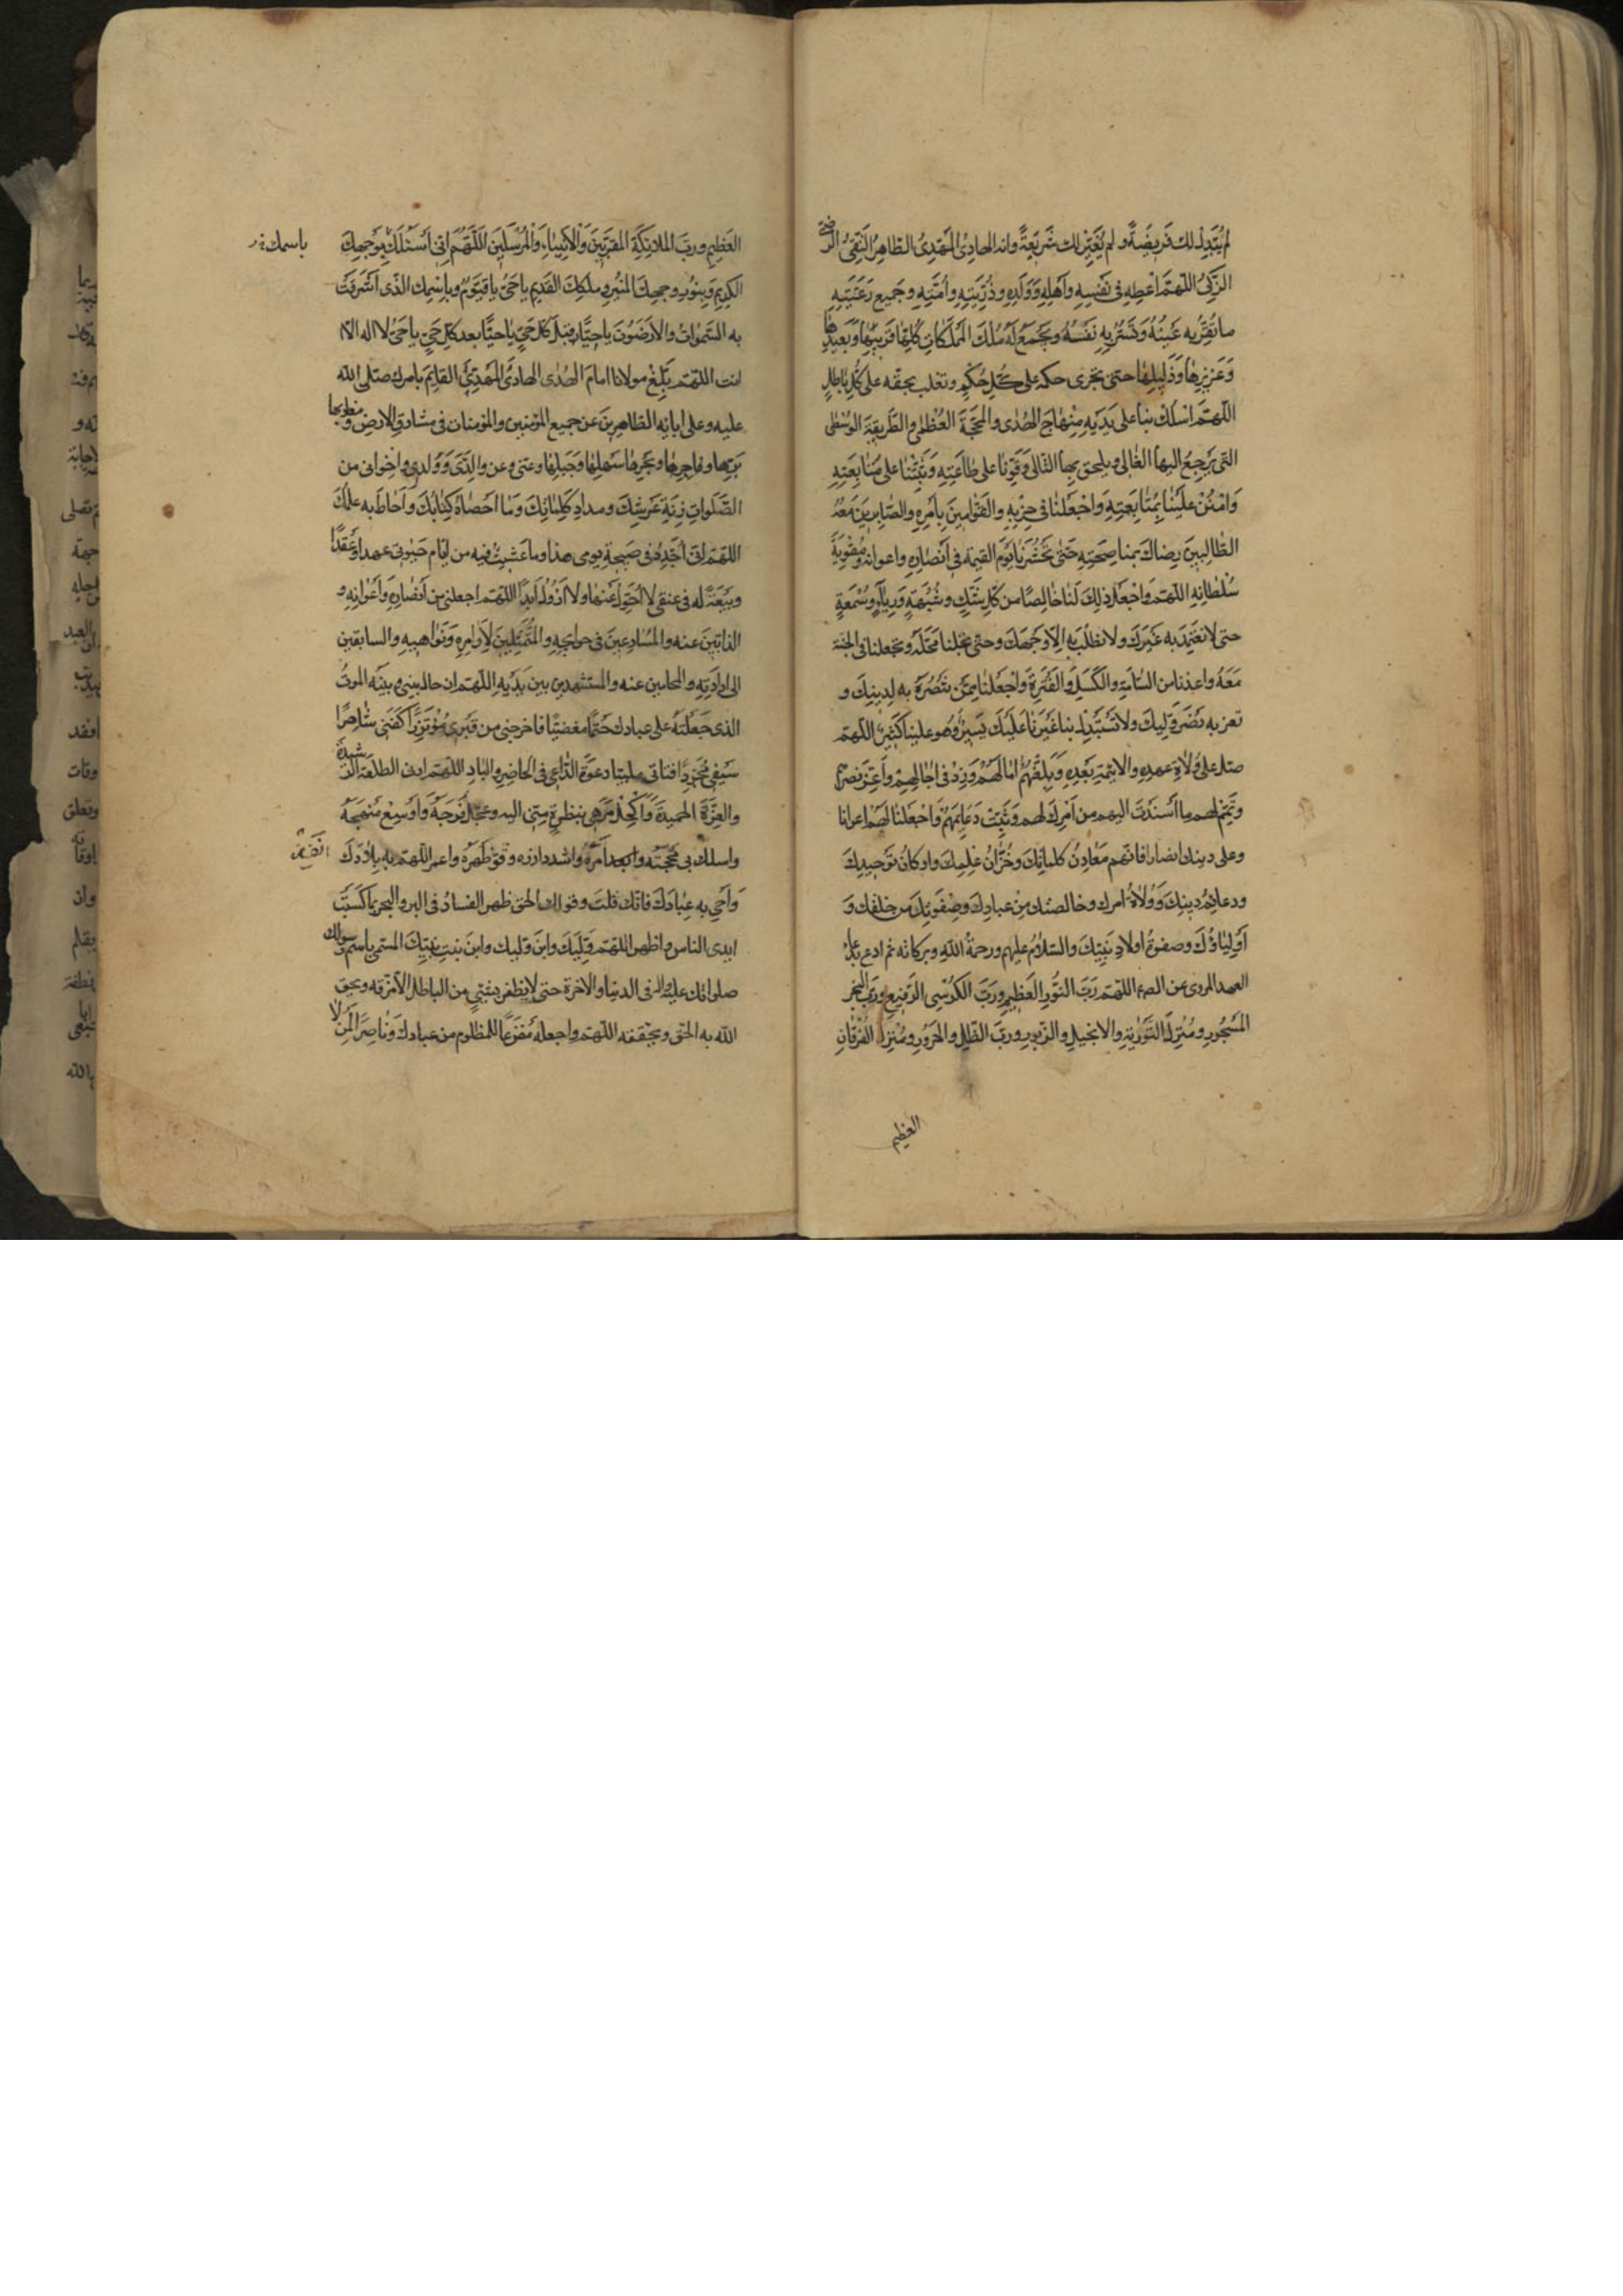 لم يُبَدِّل لك فَرِيضَةً و لم يُغَيِّر لك شَرِيعَةً وانه الهادِىُ المَهدِىُ الطاهِرُ التَّقِىُ النَّقِىُ الرَّضِىُّ
الزَّكِىُّ اللّهُمَّ اَعطِهِ فى نَفسِهِ واَهلِهِ وَوَلَدِهِ وذُرِّيَّتِهِ واُمَّتِهِ وجَميعِ رَعِيَّتِهِ
ما تُقِرُّ بِه عَينُهُ وَتَسُرُّ بِهِ نَفسَهُ وتَجمَعُ لَهُ مُلكَ المُملَكاتِ كُلِّها قَرِيبِها وَبَعِيدِها
وَعَزِيزِها وَذَلِيلِها حتى يَجرى حكمه على كُلِّ حُكمٍ وتغلب بحقّه على كُلِّ باطلٍ
اللّهُمَّ اسلك بنا على يَدَيهِ مِنهاجَ الهُدٰى والمَحَجَّةَ العُظمٰى والطَّرِيقَةَ الوُسطٰى
التى يَرجِعُ اليها الغالى ويلحق بِها التالى وَقَوِّنا على طاعَتِهِ وَثَبِّتنا على مُتابَعَتِهِ
وَامنُن عَلَينا بِمُتابَعَتِهِ وَاجعَلنا فى حِزبِهِ والقَوّامِينَ بِاَمرِهِ والصّابِرِينَ مَعَهُ
الطّالِبينَ رِضاكَ بمناصِحَتِهِ حَتّى تَحشُرَنا يَومَ القيمة فى اَنصارِهِ واعوانه ومُقَوِّيَةِ
سُلطانِهِ اللّهُمَّ وَاجعَل ذلِكَ لَنا خالِصًا من كُلِّ شَكٍّ وشُبهَةٍ وَرِياءٍ وسُمعَةٍ
حتى لا نَعتَمِدَ به غَيرَكَ ولا نطلُبَ بِه اِلّا وَجهَكَ وحتى تحلنا مَحَلَّهُ وتجعلنا فى الجنة
مَعَهُ واعذنا من السّامَةِ والكَسَلِ والفَترَةِ وَاجعَلنا مِمَّن تَنتَصِرُ بِه لِدِينِكَ و
تعز به نَصرَ وَلِيّكَ ولا تَستَبدِل بنا غَيرَنا فانّ استبدالك بنا غَيرَنا عَلَيكَ يَسِيرٌ وهُو علينا كَثيرٌ اللّهم
صَلِّ على وُلاةِ عهدِهِ والائِمَّةِ بَعدِهِ وَبَلِّغهُم امالَهُم وَزِد فى اجالِهِم واَعِزَّ نَصرَهُم
وتَمِّم لهم ما اَسنَدتَ اليهم من اَمرِكَ لهم وثَبِّت دَعائِمَهُم وَاجعَلنا لَهُم اعوانا
وعلى دينك انصارا فانّهم مَعادِنُ كلماتِكَ وخُزّانُ عِلمِكَ واركانُ تَوحِيدِكَ
ودعائِمُ دينِكَ وَوُلاةُ امرك وخالصتك مِن عبادِكَ وصفوتك مِن خلقك وَ
اَولِياؤُكَ وصفوةُ اولادِ نَبِيِّكَ والسّلامُ عليهم ورحمةُ اللهِ وبركاته ثم ادع بدعاء
العهد المروى عن الصـ اللّهم رَبَّ النُّورِ العَظِيمِ ورَبَّ الكُرسِىِ الرَّفِيعِ ورَبَّ البَحرِ
المَسجُورِ ومُنزِلَ التَّوريٰةِ والانجيلِ والزّبورِ وربَّ الظِّلِّ والحَرُورِ ومُنزِلَ الفُرقانِ
العظيم
العَظِيمِ وربَّ الملائِكَةِ المقرَّبِينَ وَالاَنبِياءِ وَالمُرسَلِينَ اللّهُمَّ اِنّى اَسئَلُكَ بِوَجهِكَ
باسمك
الكَرِيمِ وَبِنُورِ وجهِكَ المُنِيرِ ومُلكِكَ القَدِيمِ يا حَىُّ يا قَيُّومُ وباِسمِك الّذى اَشرَقَت
به السَّمواتُ والاَرَضُونَ يا حَيًّا قبلَ كُلِّ حَىٍّ يا حَيًّا بعد كُلِّ حَىٍّ يا حَىُّ لا اله الّا
انت اللّهم بَلِّغ مولانا امامَ الهُدٰى الهادِىَ المَهدِىَّ القائِمَ بامرك صلّى اللّه
عليه وعلى ابائِهِ الطّاهِرِينَ عن جميع المؤمنين والمؤمنات فى مشارقِ الارضِ ومغاربِها
بَرِّها وبحرِها سَهلِها وَجَبَلِها وعنّى وعن والِدَىَّ وَوُلدِى واخوانى من
الصَّلَواتِ زِنَةَ عَرشِكَ ومداد كَلِماتِكَ وَما اَحصاهُ كِتابُكَ واَحاطَ به عِلمُكَ
اللّهم انّى اُجَدِّدُ فى صَبِيحةِ يومى هذا وما عشتُ فيه من ايّام حَيوتى عهدًا وعَقدًا
وبَيعَةً له فى عنقى لا اَحُولُ عَنها ولا اَزُولُ اَبدًا اللّهم اجعلنى من اَنصارِهِ واَعوانِهِ و
الذابِّينَ عنه والمُسارِعِينَ فى حوائِجِهِ والمُمتَثِلِينَ لِاَوامِرِهِ وَنَواهِيهِ والسابقين
الى ارادَتِهِ والمحامين عنه والمستشهدين بين يَدَيهِ اللّهم ان حالَ بينى وبينه الموتُ
الذى جَعَلتَهُ على عبادك حَتمًا مقضيًّا فاخرجنى من قَبرِى مُؤتَزِرًا كَفَنى شاهِرًا
سَيفى مُجَرِّدًا قناتى ملبّيا دعوَةَ الدّاعى فى الحاضِرِ والبادِ اللّهم ارنى الطلعَةَ الرَّشِيدَة
والغُرَّةَ الحميدَةَ واكحُل مَرَهِى بنظرةٍ مِنّى اليه وعَجِّل فَرَجَهُ واَوسِع مَنهَجَهُ
واسلك بى مَحَجَّتَه وانفذ اَمرَهُ واشدد ازره وقَوِّ ظَهرَهُ واعمر اللّهم به بِلادَكَ
وَاَحىِ به عِبادَكَ فانّك قلتَ وقولك الحق ظهر الفسادُ فى البر والبحر بِما كَسَبَت
ايدى الناس فاظهر اللّهم وَلِيَّكَ وابنَ وليك وابنَ بنتِ نَبِيِّكَ المسمى باسمِ رسولك
صلواتك عليه واله فى الدنيا والاخرة حتى لا يظفرَ بشئٍ من الباطلِ الّا مَزَّقَه ويحق
اللّه به الحق ويحققه اللّهم واجعله مَفزَعًا للمظلوم من عبادك وناصِرًا لِمَن لا